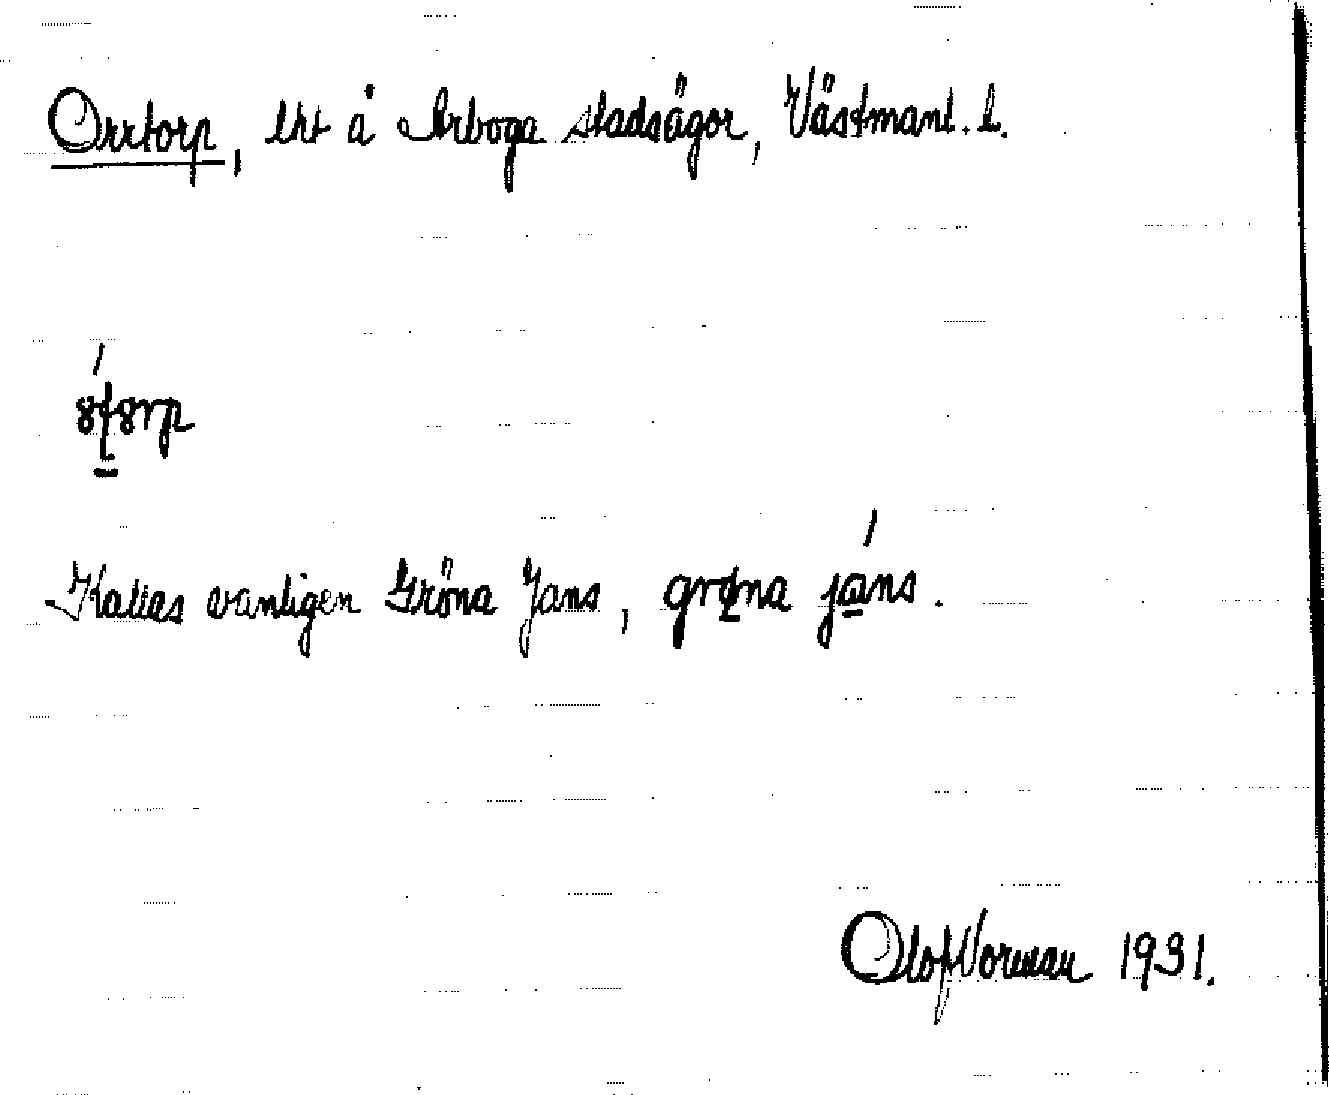 Orrtorp, lht å Arboga stadsägor, Västmanl. l.
Kallas vanligen Gröna Jans, grøna jáns.
Olof Norman 1931.